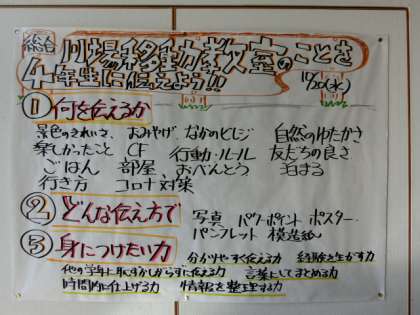 総合 川場移動教室のことを 10/20(水)
4年生に伝えよう!!
① 何を伝えるか
景色のきれいさ、おみやげ、なかのビレジ 自然のゆたかさ
楽しかったこと CF 行動・ルール 友だちの良さ
ごはん 部屋 おべんとう 泊まる
行き方 コロナ対策
② どんな伝え方で 写真 パワーポイント ポスター
パンフレット 模造紙
③ 身につけたい力 分かりやすく伝える力 経験を生かす力
他の学年にはずかしがらずに伝える力 言葉にしてまとめる力
時間内に仕上げる力 情報を整理する力